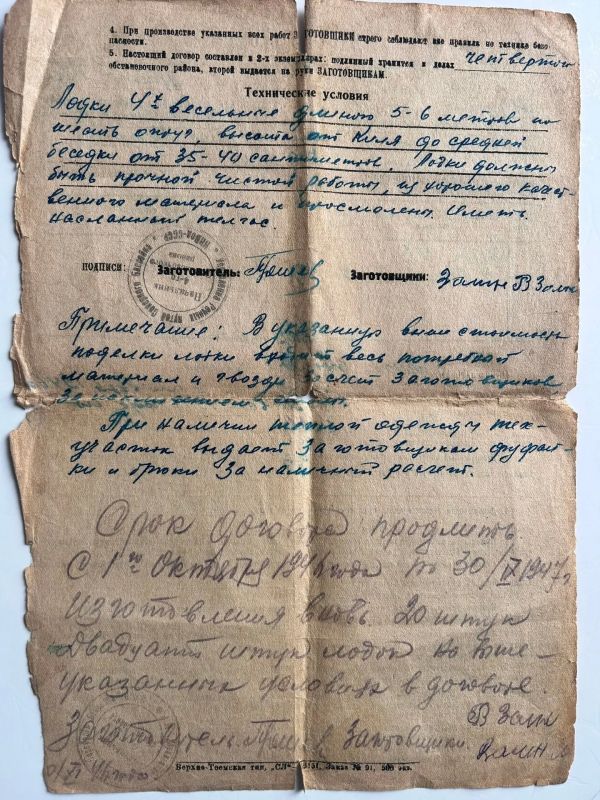 4. При производстве указанных всех работ ЗАГОТОВЩИКИ строго соблюдают все правила по технике безо-
пасности.
5. Настоящий договор составлен в 2-х экземплярах: подлинный хранится в делах четвертого
обстановочного района, второй выдается на руки ЗАГОТОВЩИКАМ.
Технические условия
Лодки 4х весельные длиною 5-6 метров по
шесть опруг, высота от киля до средней
беседки от 35-40 сантиметров. Лодки должны
быть прочной чистой работы, из хорошего качест-
венного материала и просмолены. Иметь
ПОДПИСИ: Заготовитель: Заготовщики: Залин В Залин
Примечание: В указанную выше стоимость
поделки лодки входит весь потребной
материал и гвозди за счет Заготовщиков
При наличии теплой одежды тех-
участок выдает Заготовщикам фуфай-
ки и брюки за наличный расчет.
Срок договора продлить
С 1го Октября 1946 года по 30/IV 1947 г
Изготовления вновь 20 штук
Двадцать штук лодок на выше-
указанных условиях в договоре.
В Залин
Заготовитель Заготовщики Залин
Верхне-Тоемская тип. Заказ № 91, 500 экз.